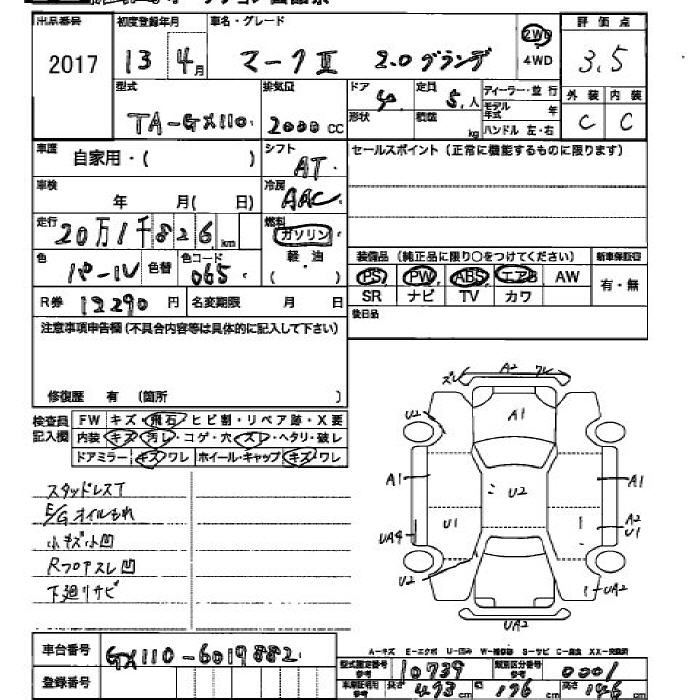 出品番号 初度登録年月 車名・グレード 評価点
2017 13年4月 マークⅡ 2.0グランデ 2WD 4WD 3.5
型式 排気量 ドア 定員 ディーラー・並行 外装 内装
TA-GX110 2000cc 4 5人 モデル年式 年 C C
形状 積載 kg ハンドル 左・右
車歴 自家用・( ) シフト AT セールスポイント(正常に機能するものに限ります)
車検 年 月( 日) 冷房 AAC
走行 20万1千826km 燃料 ガソリン
色 パール 色替 色コード 065 軽油 ( )
装備品(純正品に限り○をつけてください) 新車保証書
PS PW ABS エアB AW 有・無
SR ナビ TV カワ
R券 12290円 名変期限 月 日 後日品
注意事項申告欄(不具合内容等は具体的に記入して下さい)
修復歴 有(箇所 )
検査員記入欄 FW キズ・飛石・ヒビ割・リペア跡・X要
内装 キズ・汚レ・コゲ・穴・スレ・ヘタリ・破レ
ドアミラー キズ・ワレ ホイール・キャップ キズ・ワレ
スタッドレスT
E/Gオイルもれ
小キズ小凹
RフロアスレA凹
下廻リサビ
ズレ A2 ワレ
U2 A1
A1 U2 A1
U1 A2
UA4 U1
U2 UA2
UA2
A-キズ E-エクボ U-凹み W-補修跡 S-サビ C-腐食 XX-交換済
車台番号 GX110-6019882
登録番号
型式指定番号 10739 類別区分番号 0001
長さ 473cm 幅 176cm 高さ 146cm